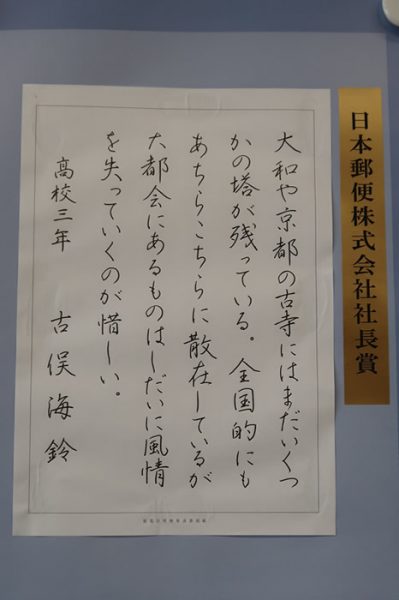 日本郵便株式会社社長賞
大和や京都の古寺にはまだいくつ
かの塔が残っている。全国的にも
あちらこちらに散在しているが
大都会にあるものはしだいに風情
を失っていくのが惜しい。
高校三年 古俣海鈴